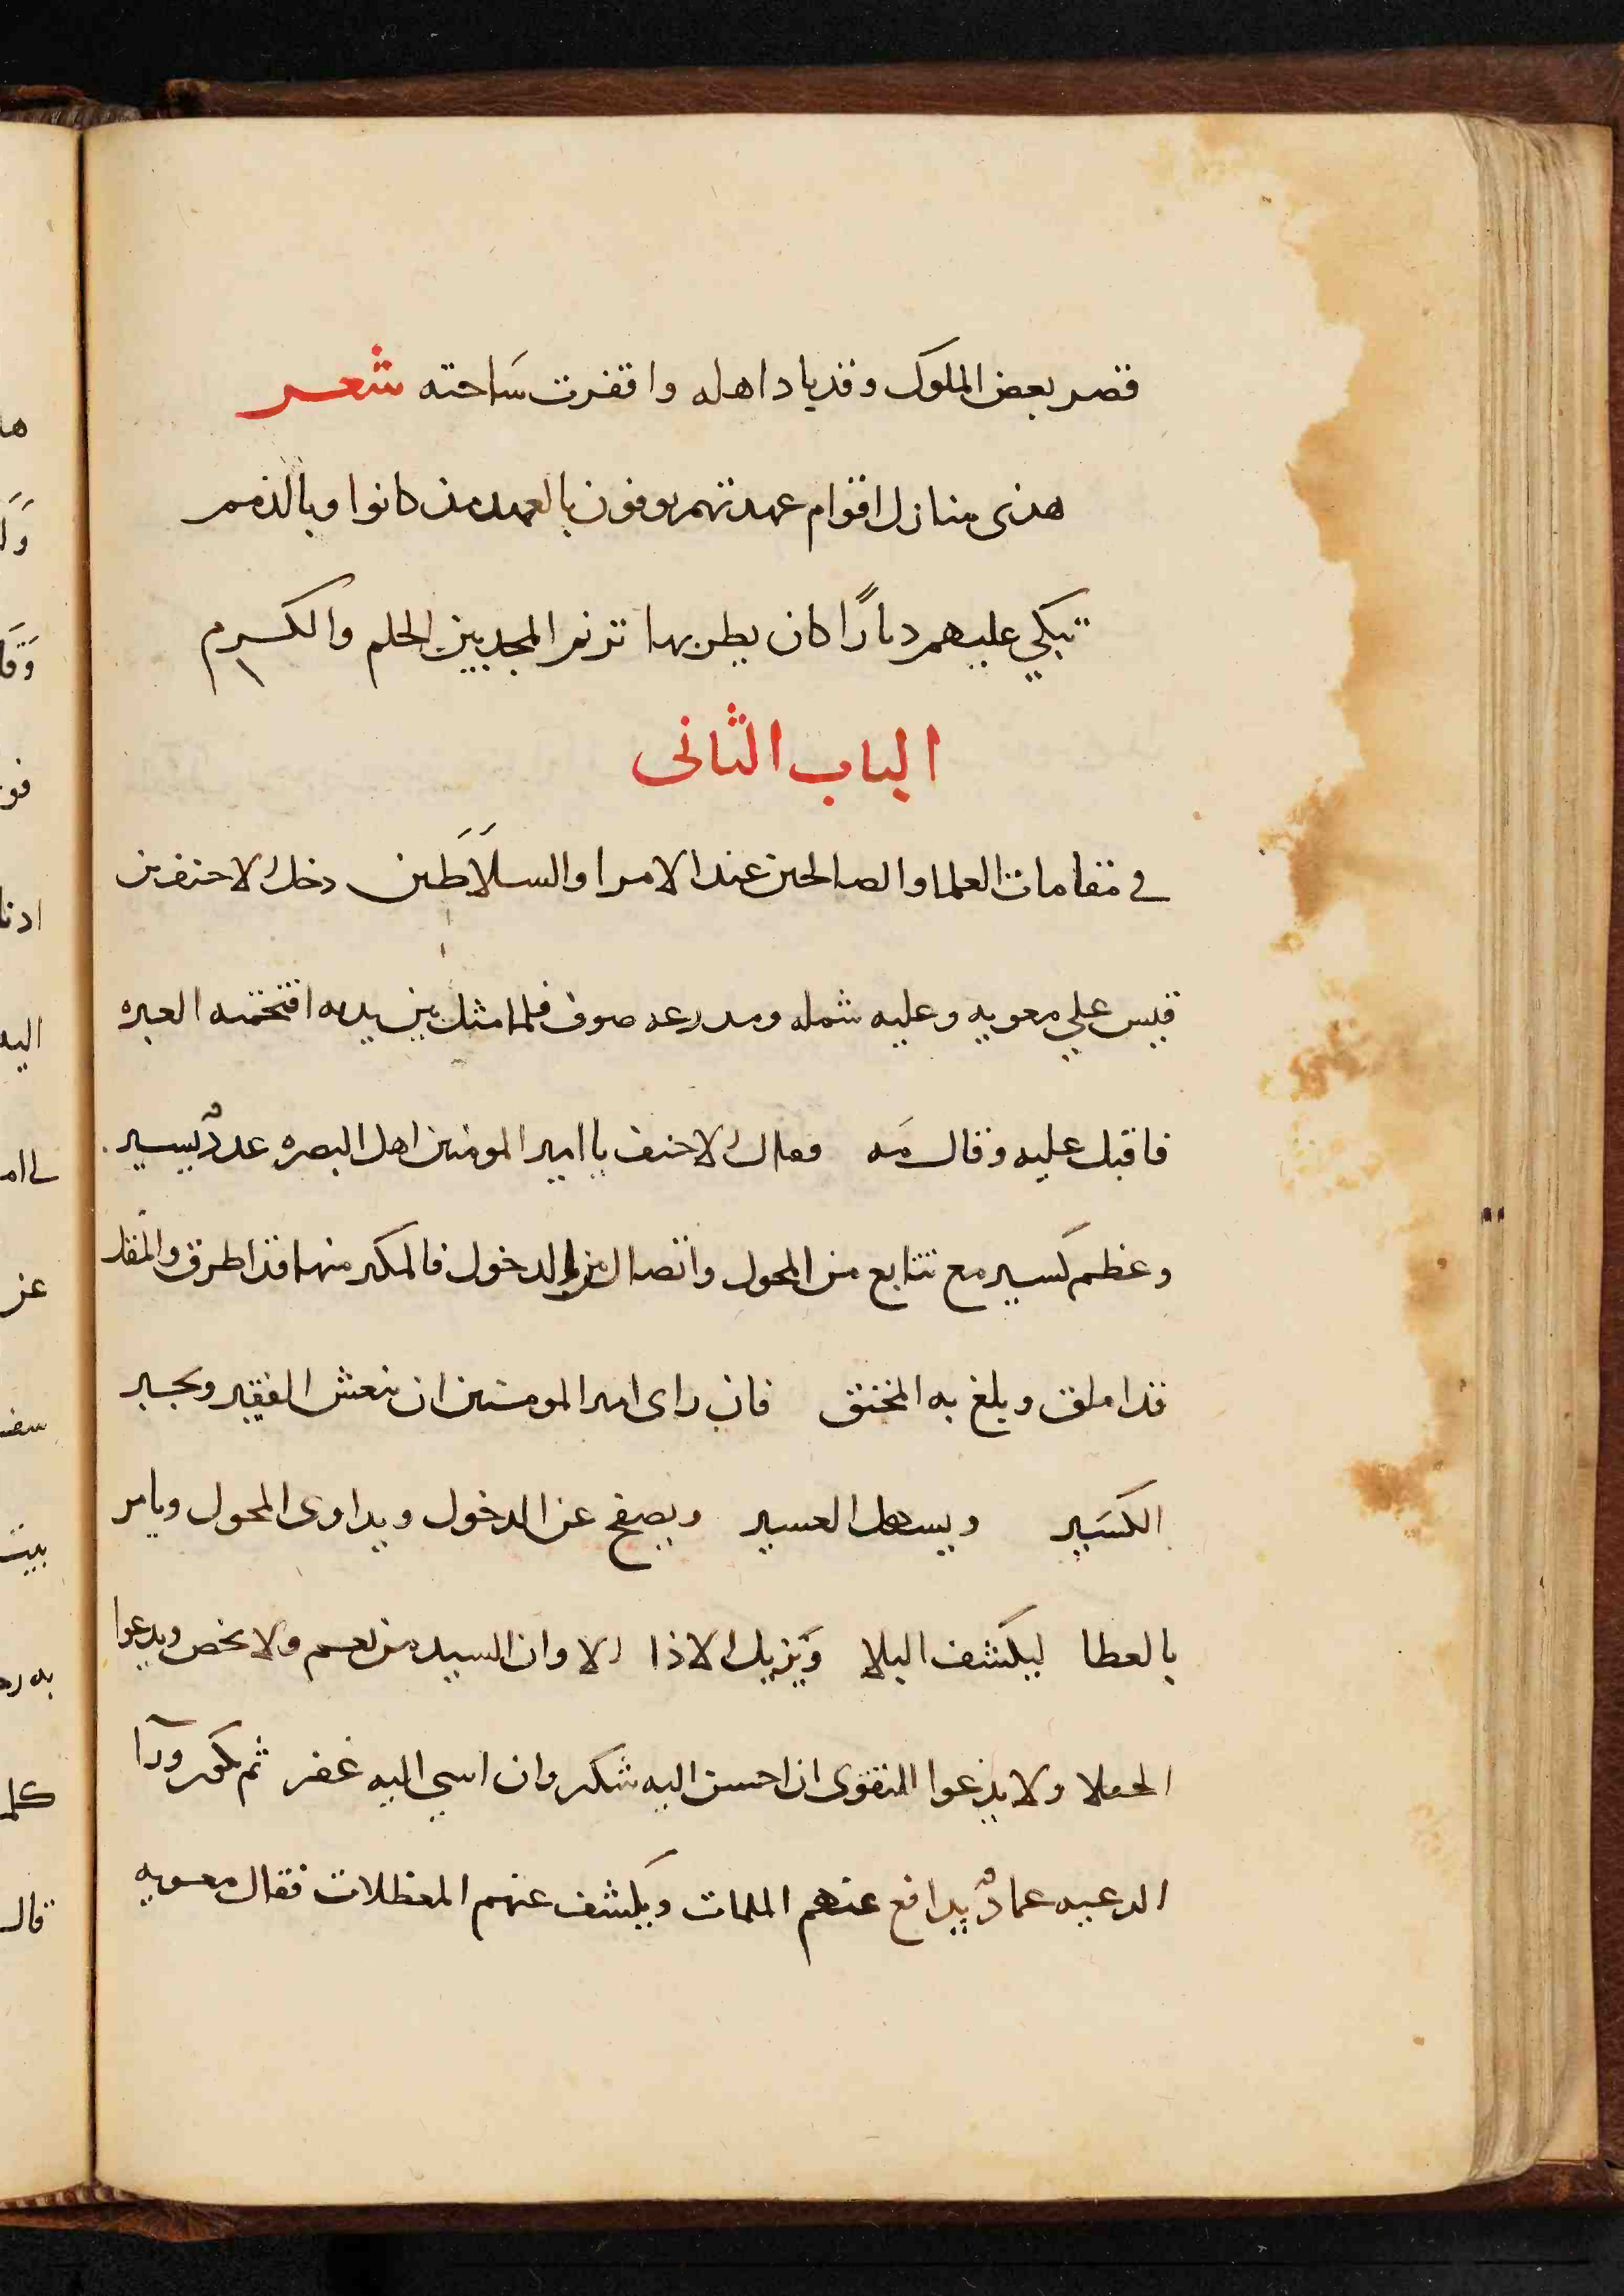 قصر بعض الملوك وقد باد اهله واقفرت سَاحته شعر
هذى منازل اقوام عهدتهم يوفون بالعهد مذ كانوا وبالذمم
تبكي عليهم ديارًا كان يطربها ترنم المجد بين الحلم والكرم
الباب الثانى
في مقامات العلما والصالحين عند الامرا والسلَاطين دخل الاحنف بن
قيس علي معويه وعليه شمله ومدرعه صوف فلما مثل بين يديه اقتحمته العيره
فاقبل عليه وقال مَه فقال الاحنف يا امير المومنين اهل البصره عددٌ يسير
وعظم كسير مع تتابع من المحول واتصال من الدخول فالمكثر منها قد اطرق والمقل
قد املق وبلغ به المخنق فان راى امير المومنين ان ينعش الفقير ويجبر
الكسَير ويسهل العسير ويصفح عن الدخول ويداوى المحول ويامر
بالعطا ليكشف البلا وَيزيل الاذا الا وان السيد من يعم ولا يخص ويدعوا
الحفلا ولا يدعوا النقرى ان احسن اليه شكر وان اسي اليه غفر ثم يكون ورآ
الرعيه عمادٌ يدافع عنهم الملمات ويكشف عنهم المعظلات فقال معويه
ها
فو
ادنا
اليه
عن
بيت
به
كلم
قال